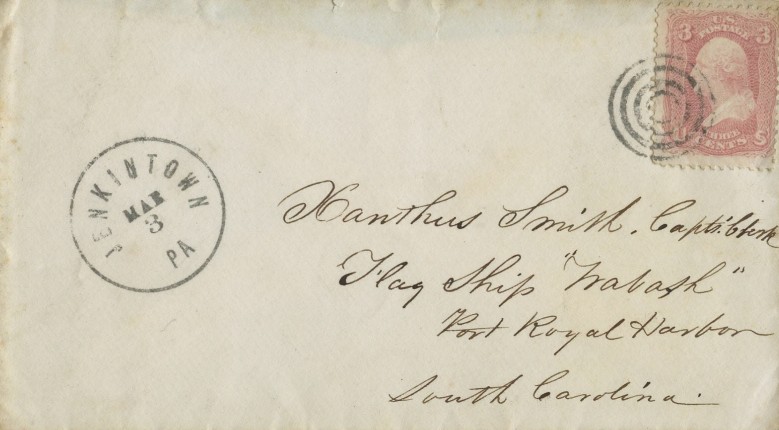 3 U.S. POSTAGE 3
THREE CENTS
JENKINTOWN
MAR
3
PA
Xanthus Smith. Capts. Clerk
Flag Ship "Wabash"
Port Royal Harbor
South Carolina.